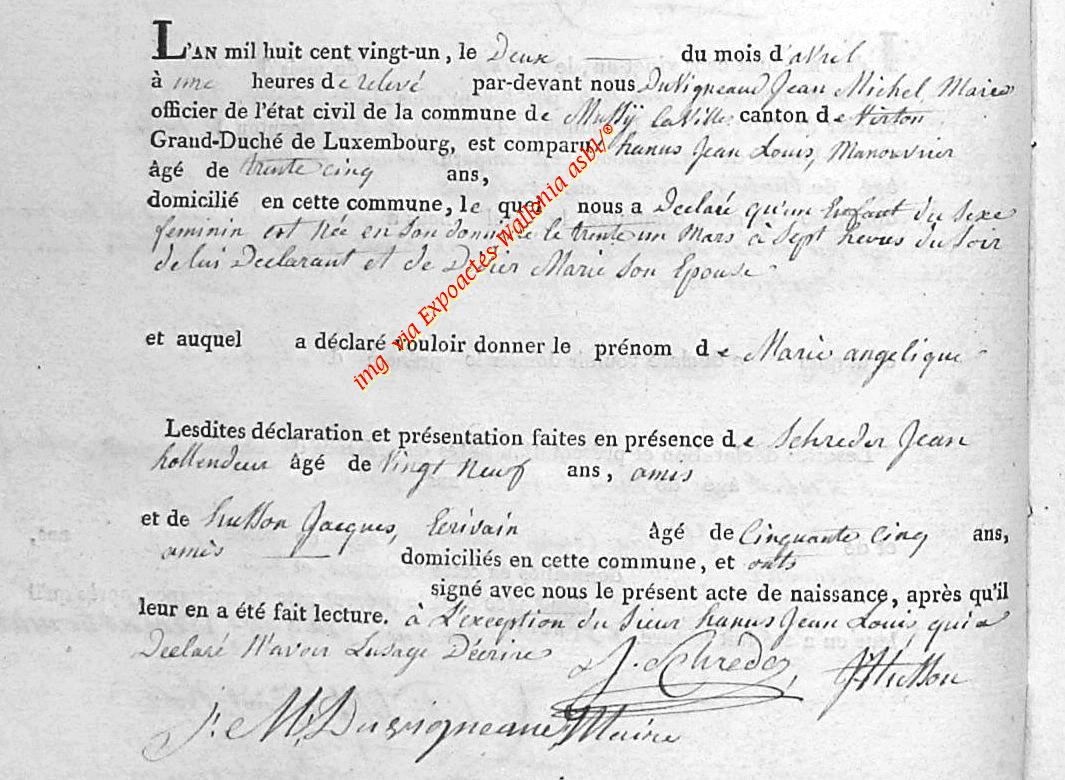 L'AN mil huit cent vingt-un, le Deux du mois d'avril
à une heures de relevé par-devant nous DuVigneaud Jean Michel Maire
officier de l'état civil de la commune de Mussÿ laVille canton de Virton
Grand-Duché de Luxembourg, est comparu hanus Jean Louis, Manouvrier
âgé de trente cinq ans,
domicilié en cette commune, le quel nous a Declaré qu'un Enfant du Sexe
feminin est Née en Son domicile le trente un Mars à Sept heures du Soir
de lui Declarant et de Didier Marie Son Epouse
et auquel a déclaré vouloir donner le prénom de Marie angelique
Lesdites déclaration et présentation faites en présence de Schreder Jean
hollendeur âgé de Vingt Neuf ans, amis
et de husson Jacques, Ecrivain âgé de Cinquante Cinq ans,
amis domiciliés en cette commune, et onts
signé avec nous le présent acte de naissance, après qu'il
leur en a été fait lecture. à L'exception du Sieur hanus Jean Louis qui a
Declaré N'avoir Lusage Décrire
J. Schreder JHusson
J. M. Duvigneaud Maire
img via Expoactes Wallonia asbl/®